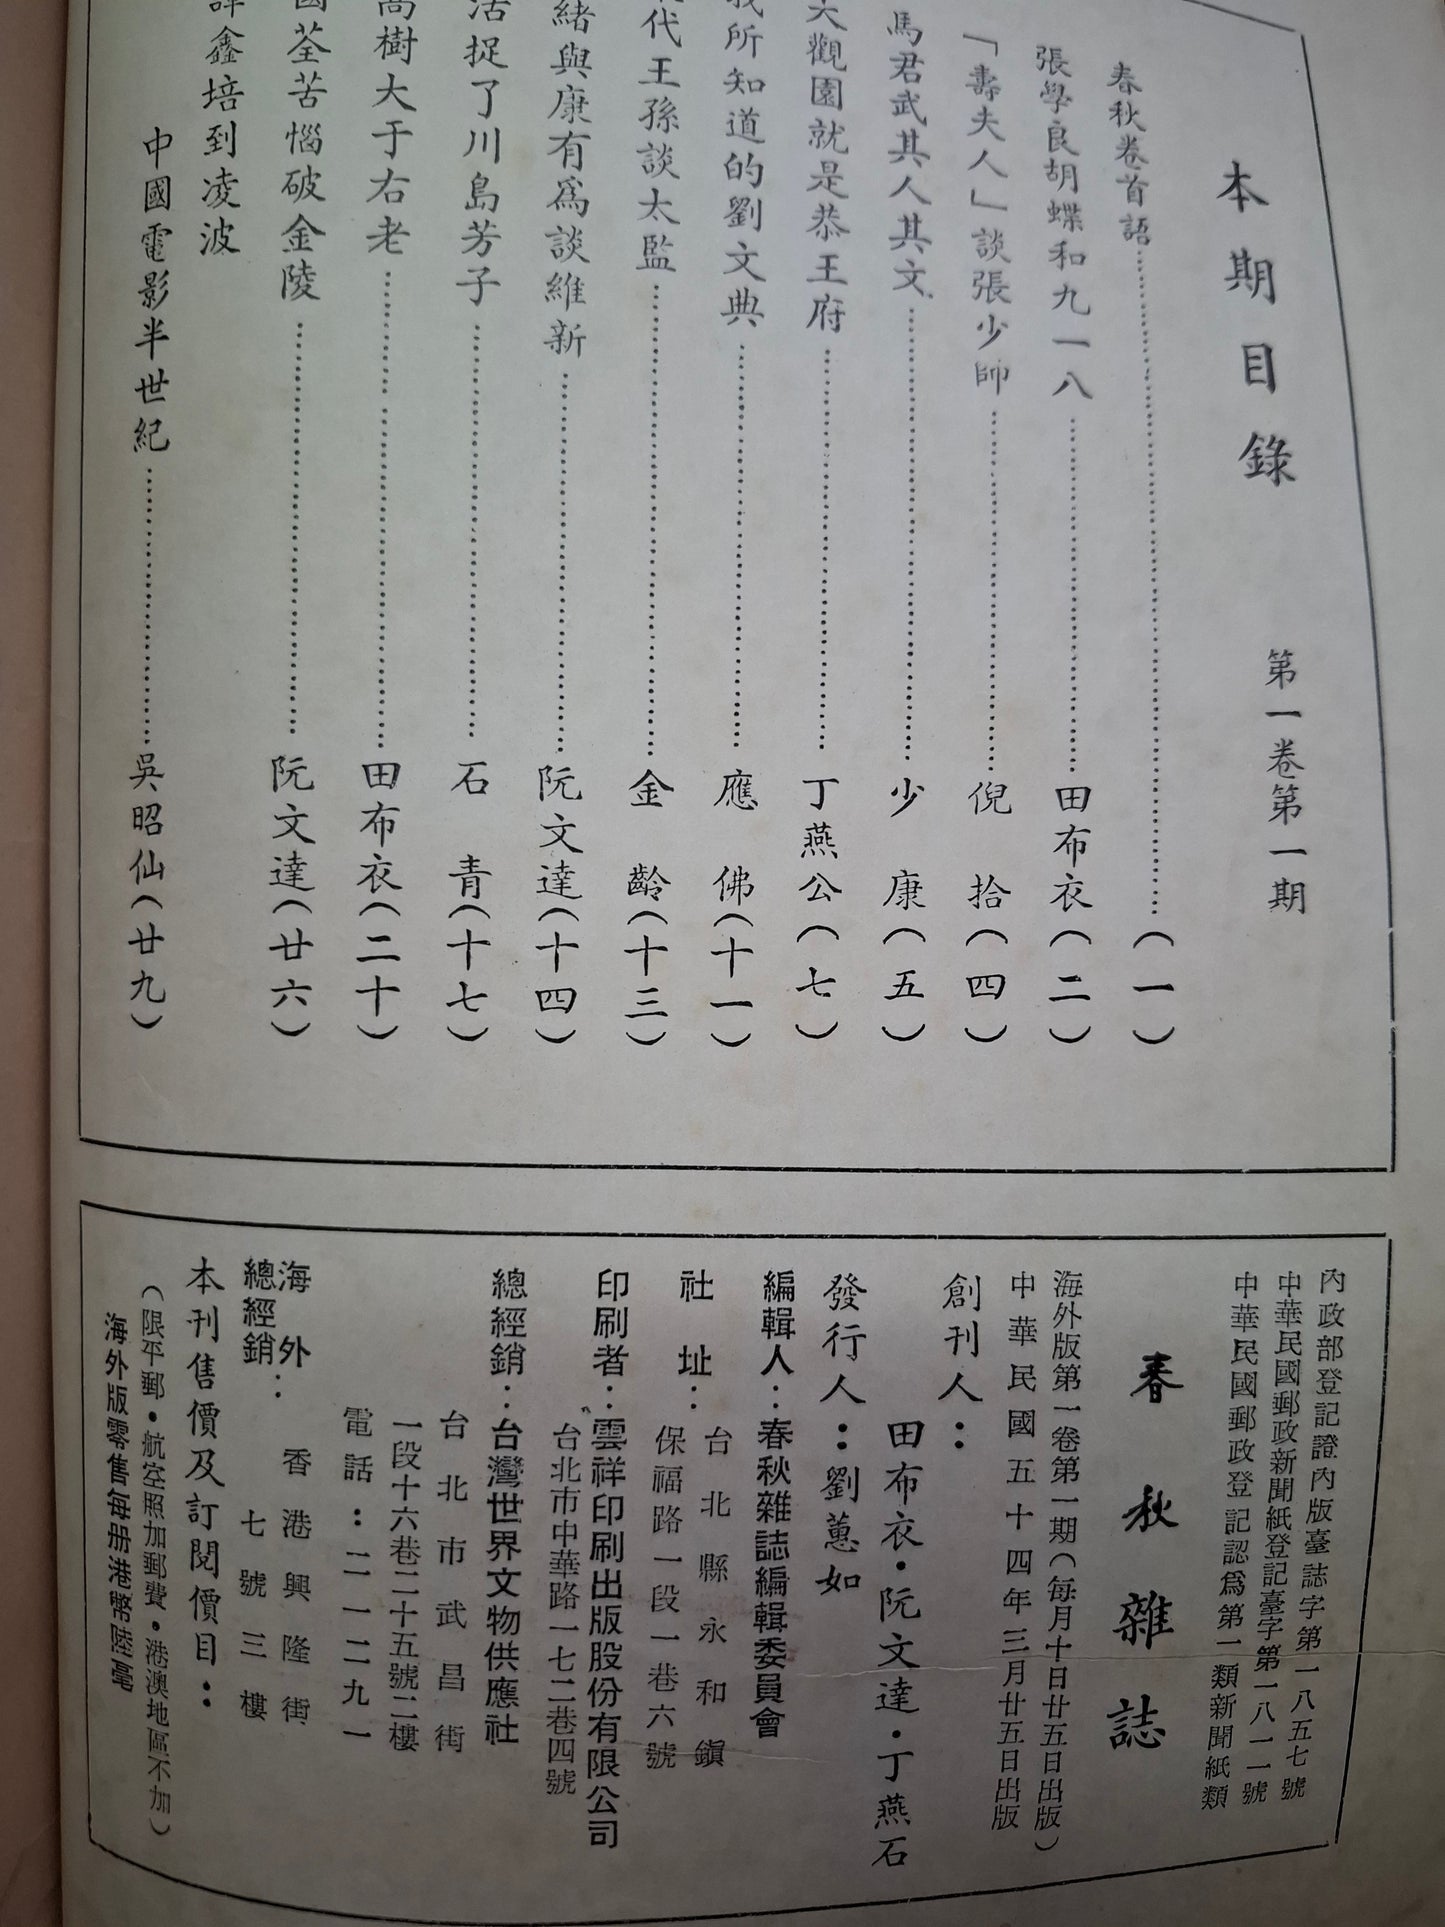 本期目錄　第一卷第一期
春秋卷首語……(一)
張學良胡蝶和九一八……田布衣(二)
「壽夫人」談張少帥……倪拾(四)
馬君武其人其文……少康(五)
大觀園就是恭王府……丁燕公(七)
我所知道的劉文典……應佛(十一)
代王孫談太監……金齡(十三)
緒與康有爲談維新……阮文達(十四)
活捉了川島芳子……石青(十七)
高樹大于右老……田布衣(二十)
圓荃苦惱破金陵……阮文達(廿六)
譚鑫培到凌波
中國電影半世紀……吳昭仙(廿九)
內政部登記證內版臺誌字第一八五七號
中華民國郵政新聞紙登記臺字第一八一一號
中華民國郵政登記認爲第一類新聞紙類
春秋雜誌
海外版第一卷第一期(每月十日廿五日出版)
中華民國五十四年三月廿五日出版
創刊人：
田布衣・阮文達・丁燕石
發行人：劉蕙如
編輯人：春秋雜誌編輯委員會
社址：台北縣永和鎭
保福路一段一巷六號
印刷者：雲祥印刷出版股份有限公司
台北市中華路一七二巷四號
總經銷：台灣世界文物供應社
台北市武昌街
一段十六巷二十五號二樓
電話：二一二九一
海外
總經銷：
香港興隆街
七號三樓
本刊售價及訂閱價目：
(限平郵・航空照加郵費・港澳地區不加)
海外版零售每册港幣陸毫